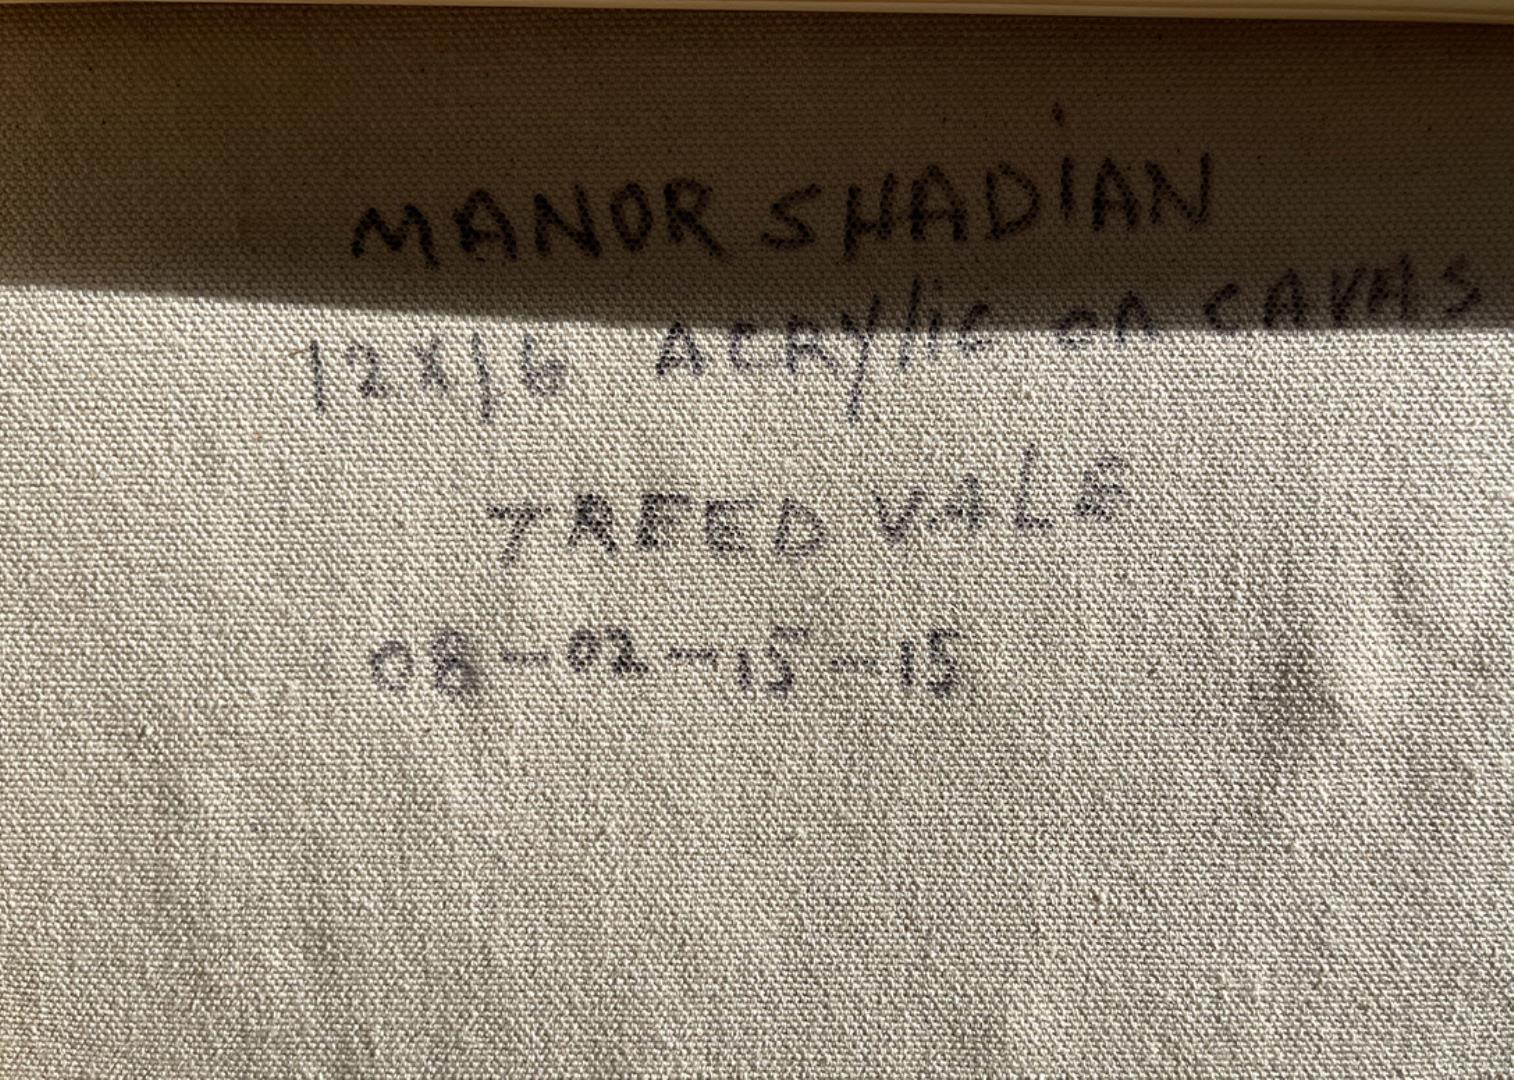 MANOR SHADIAN
12X16 ACRYlic on CAVAS
TREED VALE
08-02-15-15